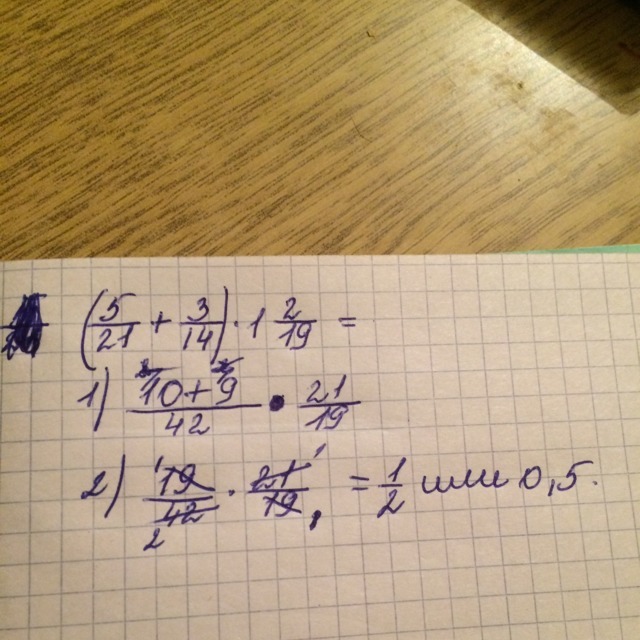 (5/21 + 3/14) · 1 2/19 =
1) (10+9)/42 · 21/19
2) 19/42 · 21/19 = 1/2 или 0,5.